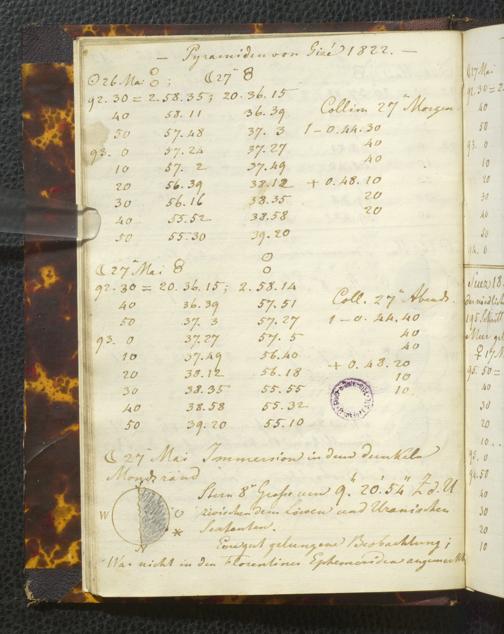 — Pyramiden von Gizé 1822. —
☉ 26 Mai 8; ☾ 27 8
92.30 = 2.58.35; 20.36.15 Collim 27 Morgen
40 58.11 36.39 1 - 0.44.30
50 57.48 37.3 40
93. 0 57.24 37.27 40
10 57.2 37.49
20 56.39 38.12 + 0.48.10
30 56.16 38.35 20
40 55.52 38.58 20
50 55.30 39.20
☾ 27 Mai 8
92.30 = 20.36.15; 2.58.14
40 36.39 57.51 Coll. 27 Abends.
50 37.3 57.27 1 - 0.44.40
93. 0 37.27 57.5 40
10 37.49 56.40 40
20 38.12 56.18 + 0.48.20
30 38.35 55.55 10
40 38.58 55.32 10
50 39.20 55.10
☾ 27 Mai Immersion in dem dunkeln
Mondsrand
Stern 8 Größe um 9h 20' 54" Z.d.U
zwischen dem Löwen und Uranischen
Sextanten.
W O
N
Eine gut gelungene Beobachtung;
War nicht in den Florentiner Ephemeriden angemerkt
27 Mai
40
50
93. 0
10
20
30
40
50
Suez 18
95.50 =
40
30
20
10
95. 0
94.50
40
30
20
10